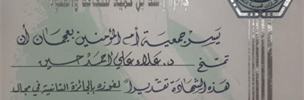 يسر جمعية أم المؤمنين بعجمان أن
تمنح د. علاء علي أحمد حسين
هذه الشهادة تقديراً لفوزه بالجائزة الثانية في مجال